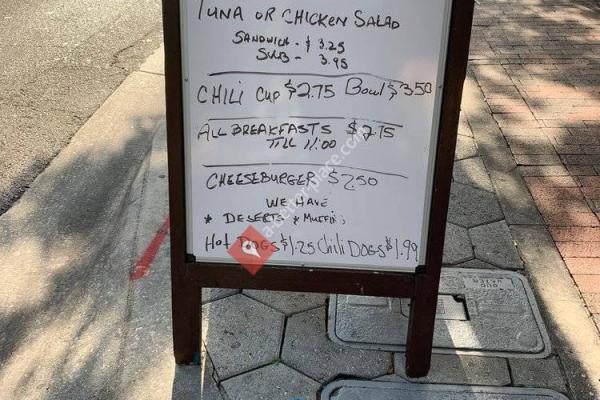 TUNA OR CHICKEN SALAD
SANDWICH - $ 3.25
SUB - 3.95
CHILI CUP $2.75 BOWL $3.50
ALL BREAKFASTS $2.75
TILL 11:00
CHEESEBURGER $2.50
WE HAVE
* DESERTS * MUFFINS
HOT DOGS $1.25 CHILI DOGS $1.99